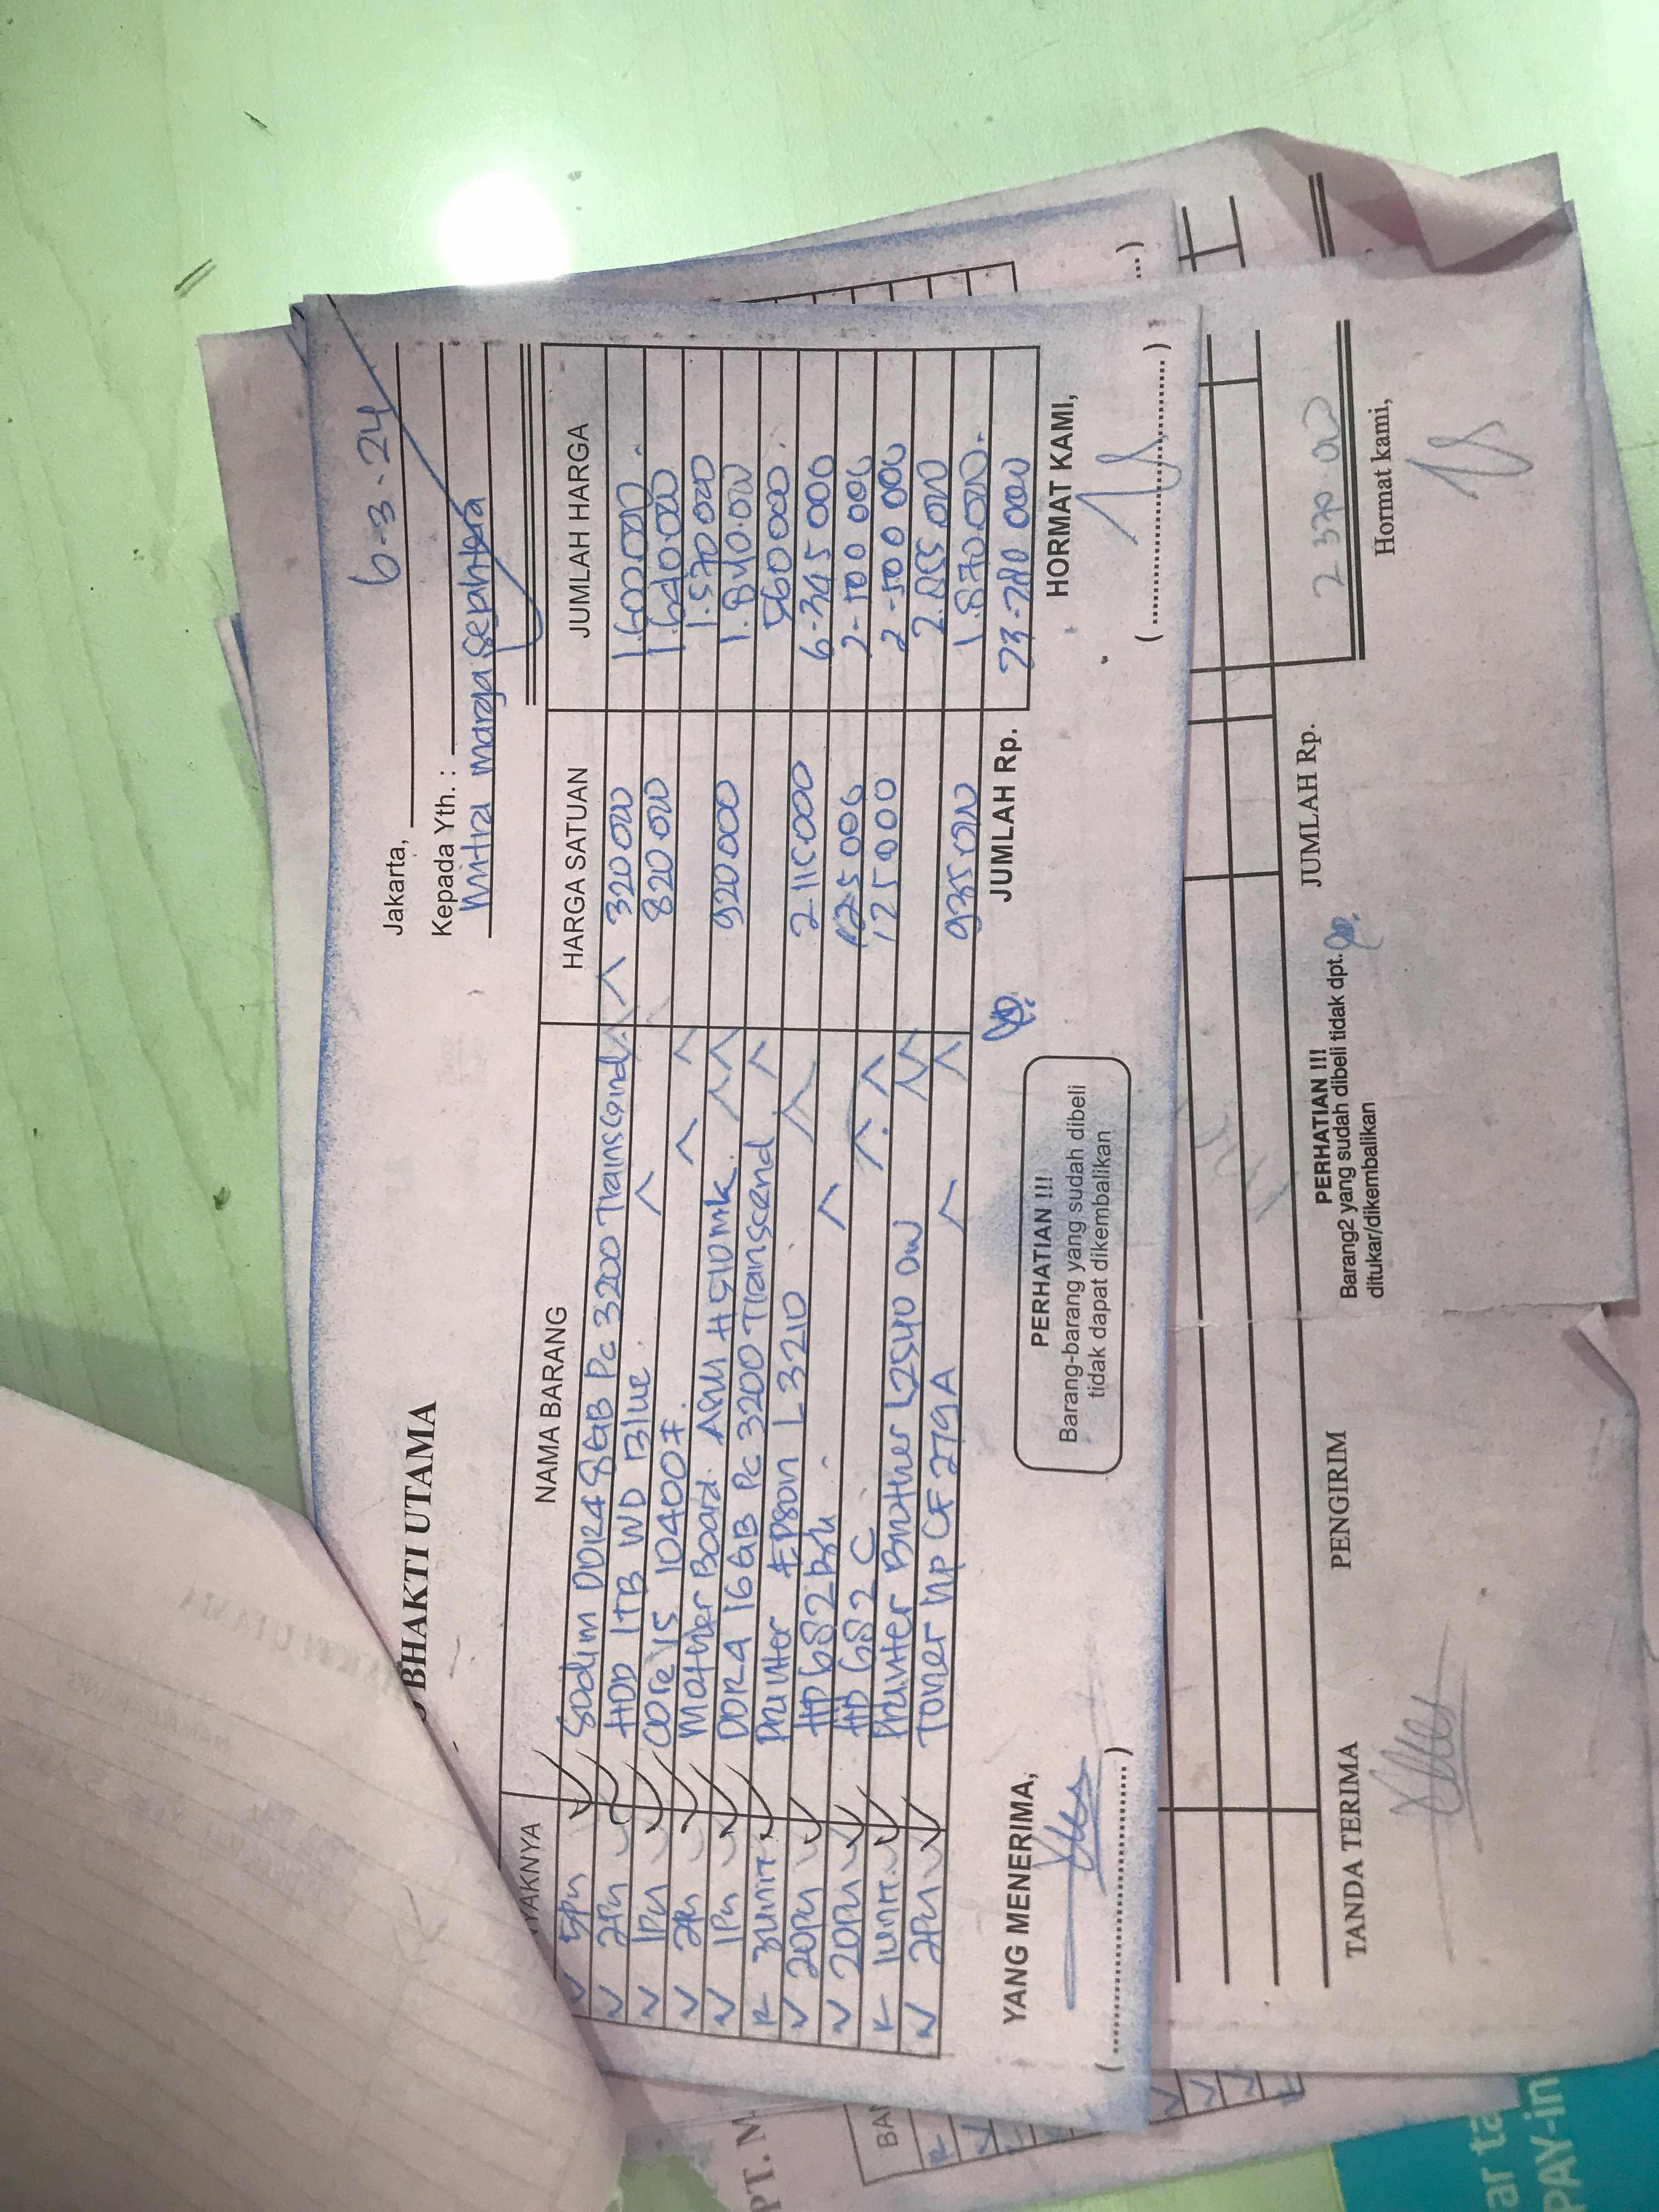 BHAKTI UTAMA
6-3-24
Jakarta,
Kepada Yth. :
Mitra Marga Sejahtera
YAKNYA NAMA BARANG HARGA SATUAN JUMLAH HARGA
5Pcs Sodim DDR4 8GB Pc 3200 Transcend 320 000 1.600.000
2Pcs HDD 1TB WD Blue 820 000 1.640 000
1Pcs Core i5 10400F. 1.570 000
2Pcs Mother Board H510MK 920000 1.840.000
1Pcs DDR4 16GB Pc 3200 Transcend 560 000
3unit Printer Epson L3210 2 115000 6-345 000
20Pcs HP 682 125 000 2-500 000
20Pcs HP 682 C 125000 2-500 000
1unit Printer Brother L2540 DW
2Pcs Toner HP CF 279A 935 000 1.870.000
JUMLAH Rp.
YANG MENERIMA,
PERHATIAN !!!
Barang-barang yang sudah dibeli
tidak dapat dikembalikan
HORMAT KAMI,
JUMLAH Rp. 2 370.000
TANDA TERIMA
PENGIRIM
PERHATIAN !!!
Barang2 yang sudah dibeli tidak dpt.
ditukar/dikembalikan
Hormat kami,
PT. M
BA
ar ta
PAY-in